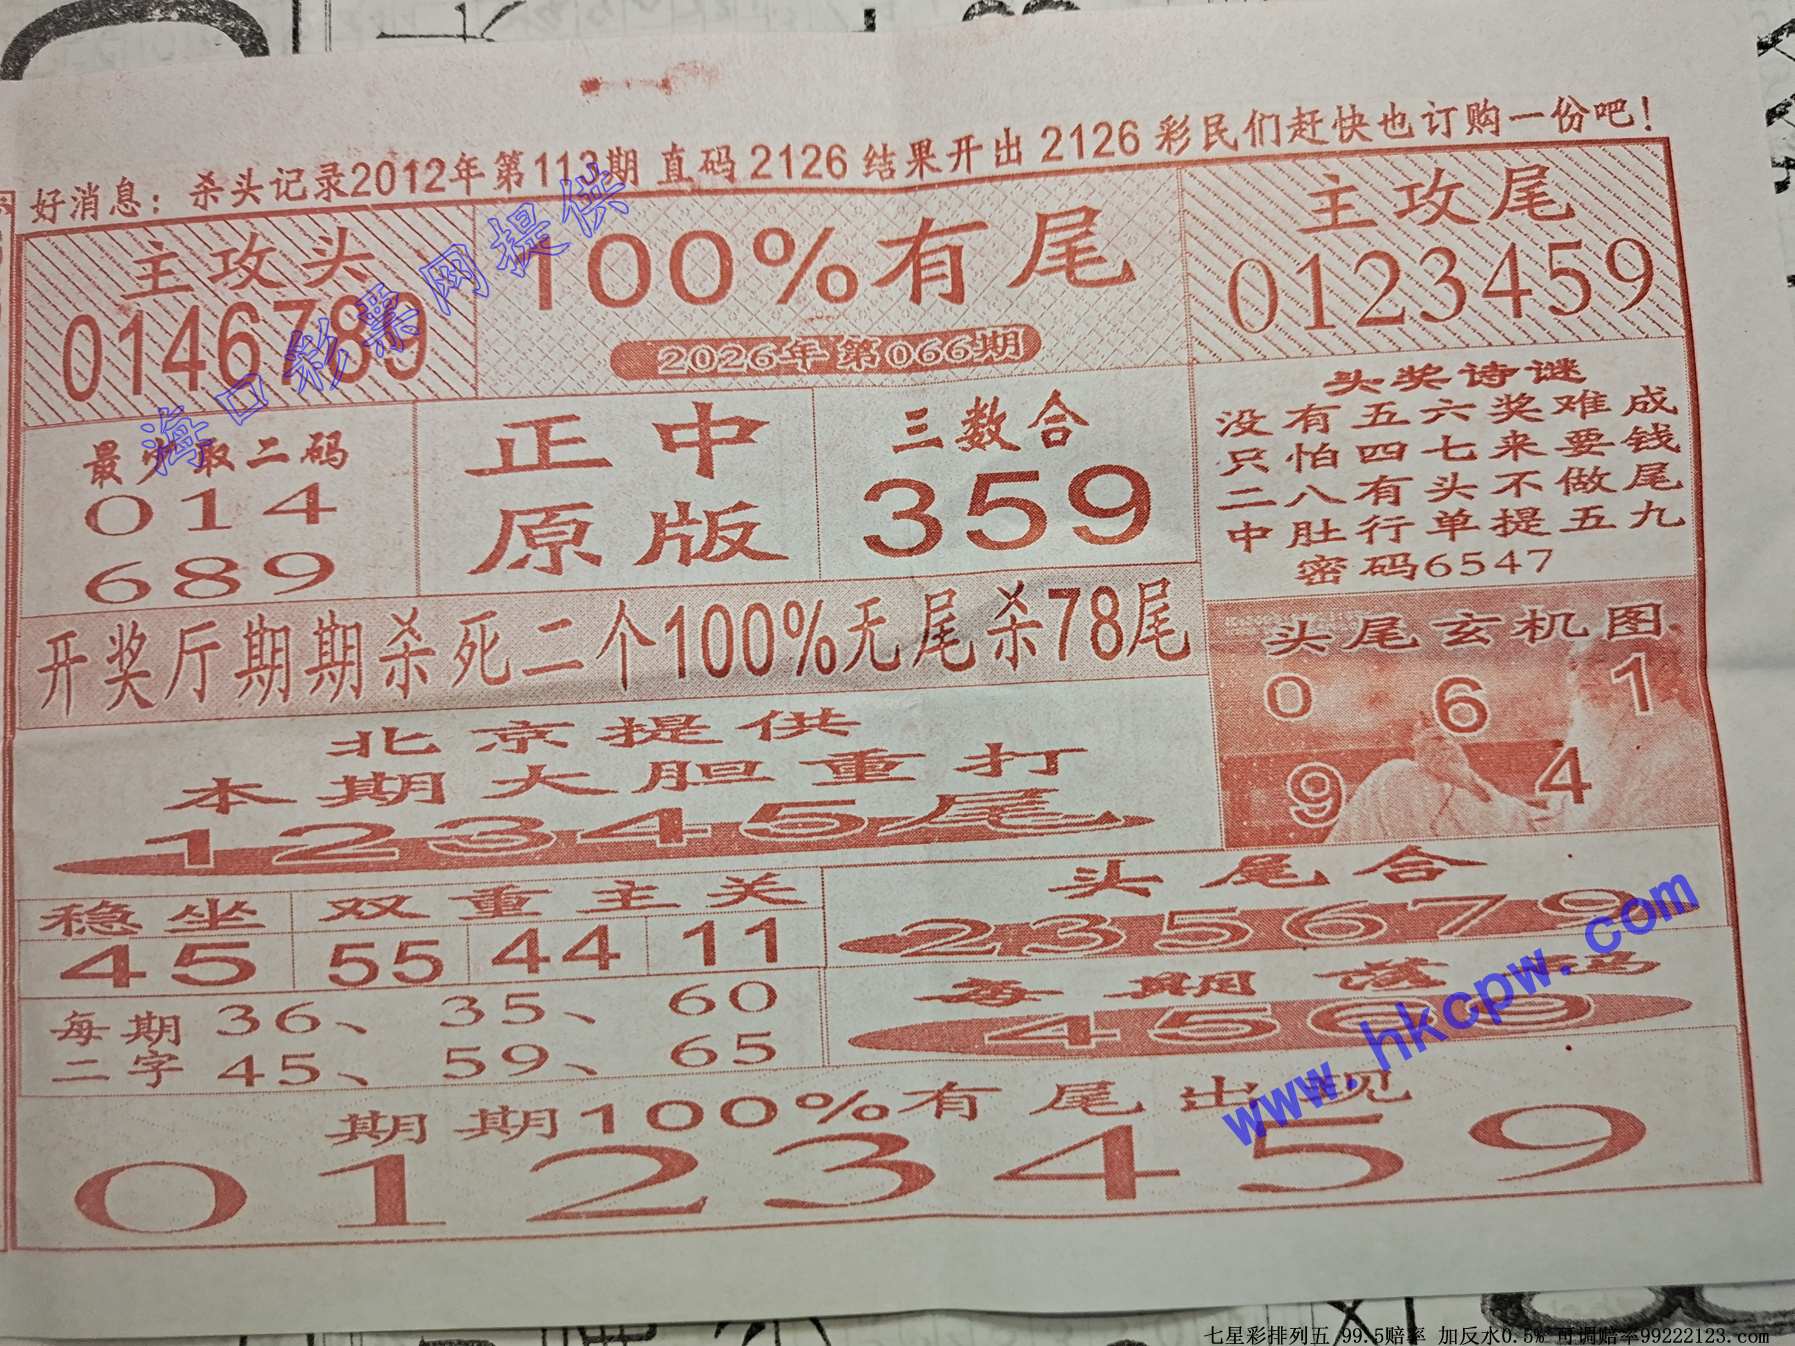 好消息：杀头记录2012年第113期 直码 2126 结果开出 2126 彩民们赶快也订购一份吧！
主攻头
0146789
100%有尾
2026年第066期
主攻尾
0123459
最少取二码
014
689
正中
原版
三数合
359
头奖诗谜
没有五六奖难成
只怕四七来要钱
二八有头不做尾
中肚行单提五九
密码6547
开奖厅期期杀死二个100%无尾杀78尾
头尾玄机图
0 6 1
9 4
北京提供
本期大胆重打
12345尾
稳坐
45
双重主关
55 44 11
头尾合
235679
每期
二字
36、 35、 60
45、 59、 65
每期落一码
4569
期期100%有尾出现
0123459
海口彩票网提供
www.hkcpw.com
七星彩排列五 99.5赔率 加反水0.5% 可调赔率99222123.com